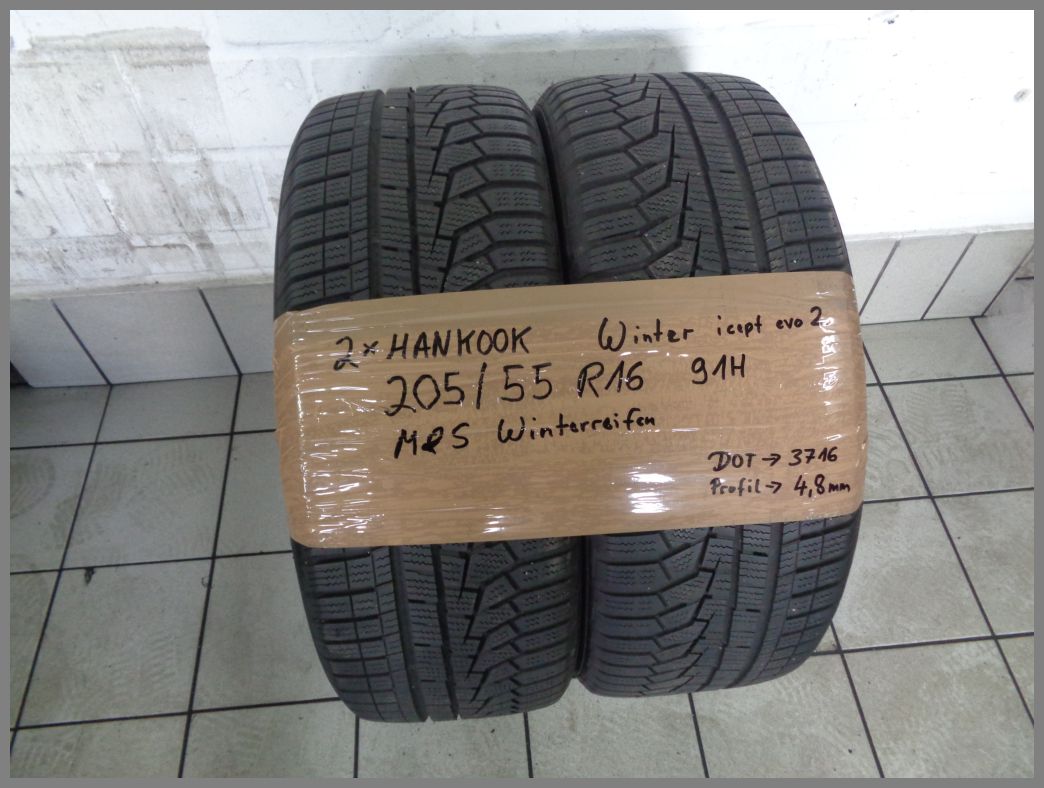 2x HANKOOK Winter icept evo 2
205/55 R16 91H
M&S Winterreifen
DOT → 3716
Profil → 4,8mm